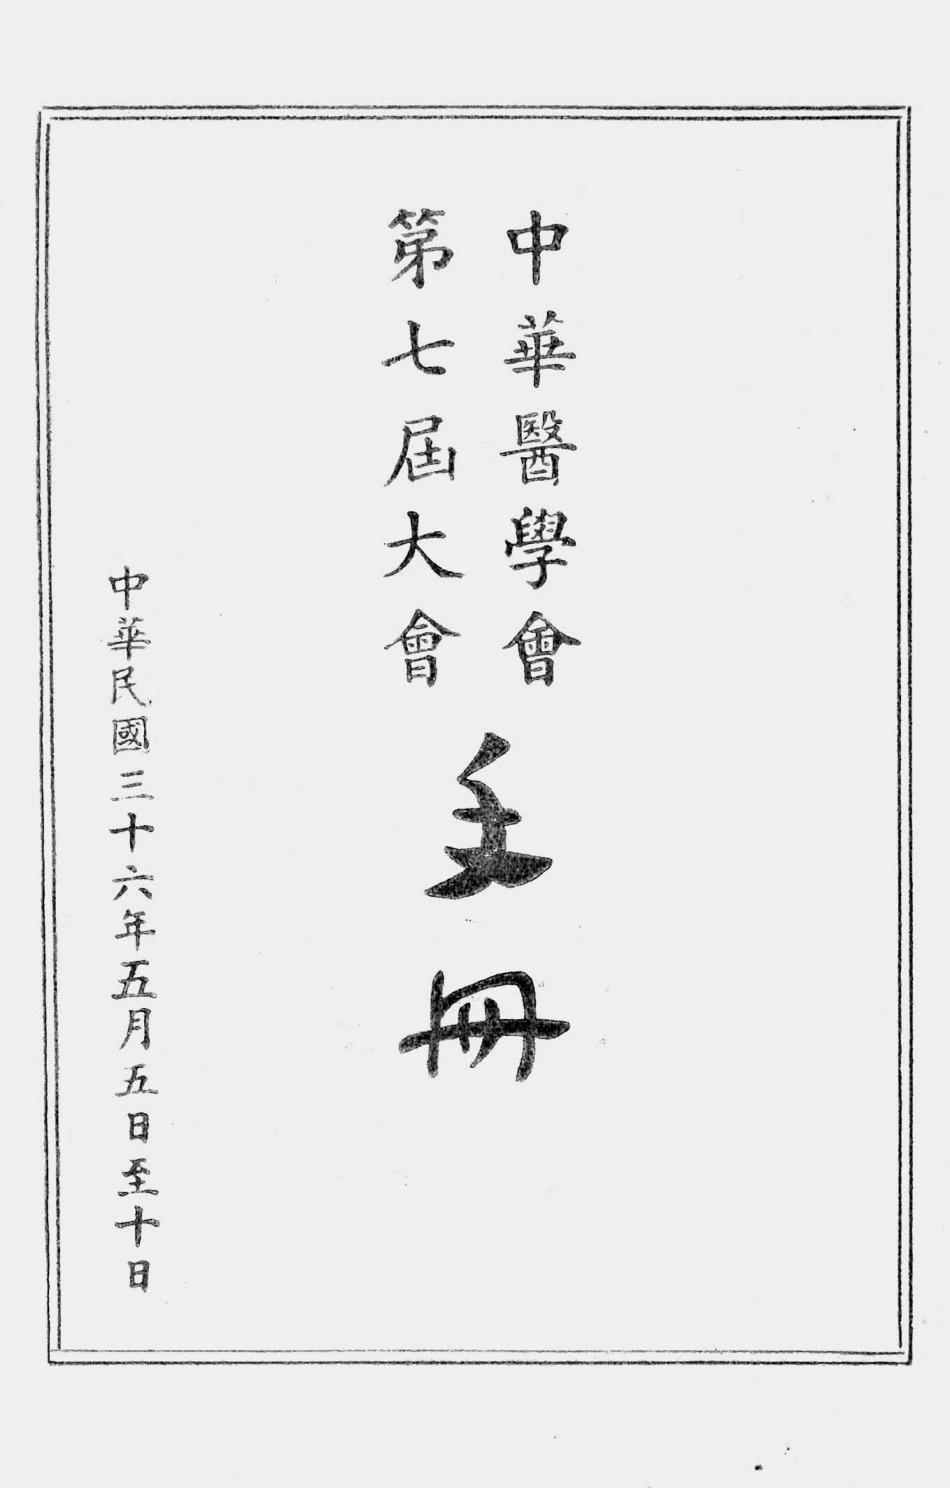 中華醫學會
第七屆大會
手冊
中華民國三十六年五月五日至十日